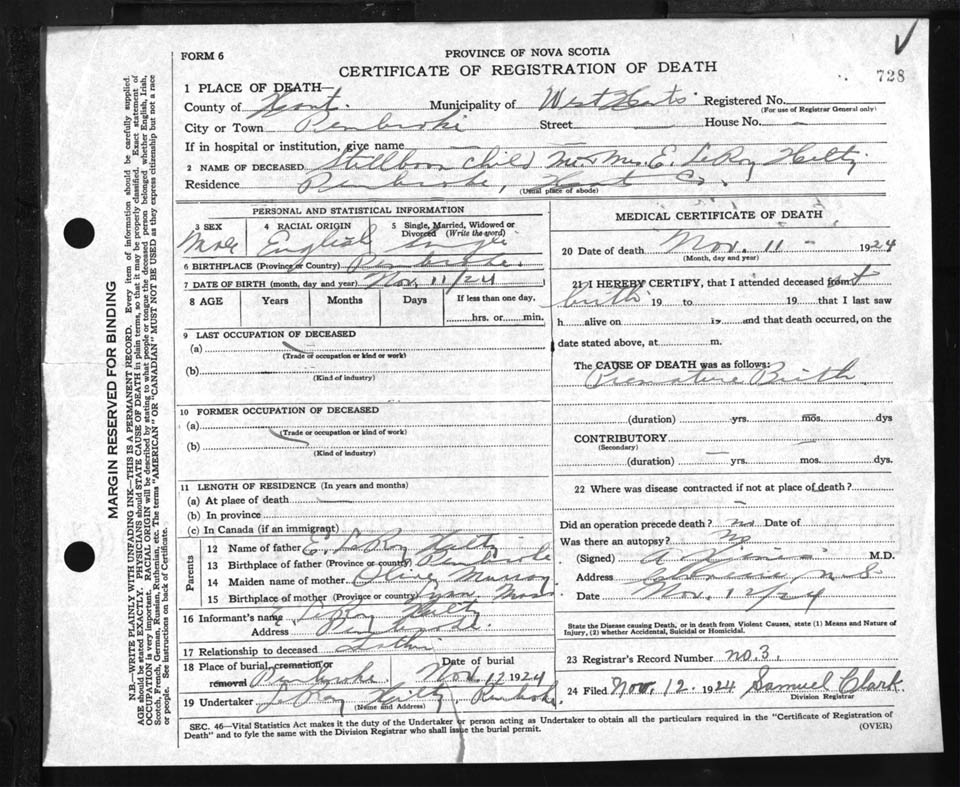 FORM 6
PROVINCE OF NOVA SCOTIA
CERTIFICATE OF REGISTRATION OF DEATH
728
1 PLACE OF DEATH—
County of Hant. Municipality of West Hants Registered No.
(For use of Registrar General only)
City or Town Pembroke Street — House No. -
If in hospital or institution, give name —
2 NAME OF DECEASED Stillborn child Mr & Mrs. E. LeRoy Hilty
Residence Pembroke, Hant Co.,
(Usual place of abode)
PERSONAL AND STATISTICAL INFORMATION
3 SEX 4 RACIAL ORIGIN 5 Single, Married, Widowed or Divorced (Write the word)
Male English Single
6 BIRTHPLACE (Province or Country) Pembroke.
7 DATE OF BIRTH (month, day and year) Nov. 11/24
8 AGE Years Months Days If less than one day,
hrs. or min.
9 LAST OCCUPATION OF DECEASED
(a)
(Trade or occupation or kind or work)
(b)
(Kind of industry)
10 FORMER OCCUPATION OF DECEASED
(a)
(Trade or occupation or kind of work)
(b)
(Kind of industry)
11 LENGTH OF RESIDENCE (In years and months)
(a) At place of death —
(b) In province
(c) In Canada (if an immigrant)
Parents
12 Name of father E. LeRoy Hilty
13 Birthplace of father (Province or country) Pembroke
14 Maiden name of mother Olive Murray
15 Birthplace of mother (Province or country) Lynn, Mass
16 Informant's name E LeRoy Hilty
Address Pembroke.
17 Relationship to deceased Father
18 Place of burial, cremation or removal Pembroke Date of burial Nov. 12 1924
19 Undertaker LeRoy Hilty, Pembroke.
(Name and Address)
MEDICAL CERTIFICATE OF DEATH
20 Date of death Nov. 11 - 1924
(Month, day and year)
21 I HEREBY CERTIFY, that I attended deceased from at
birth 19 to 19 that I last saw
h alive on 19 and that death occurred, on the
date stated above, at m.
The CAUSE OF DEATH was as follows:
Premature Birth
(duration) yrs. mos. dys
CONTRIBUTORY
(Secondary)
(duration) yrs. mos. dys.
22 Where was disease contracted if not at place of death?
Did an operation precede death? no Date of
Was there an autopsy? No
(Signed) A M.D.
Address N.S
Date Nov. 12/24
State the Disease causing Death, or in death from Violent Causes, state (1) Means and Nature of
Injury, (2) whether Accidental, Suicidal or Homicidal.
23 Registrar's Record Number no. 3.
24 Filed Nov. 12. 1924 Samuel Clark.
Division Registrar
SEC. 46—Vital Statistics Act makes it the duty of the Undertaker or person acting as Undertaker to obtain all the particulars required in the "Certificate of Registration of
Death" and to fyle the same with the Division Registrar who shall issue the burial permit.
(OVER)
MARGIN RESERVED FOR BINDING
N.B.—WRITE PLAINLY WITH UNFADING INK—THIS IS A PERMANENT RECORD. Every item of information should be carefully supplied.
AGE should be stated EXACTLY. PHYSICIANS should STATE CAUSE OF DEATH in plain terms, so that it may be properly classified. Exact statement of
OCCUPATION is very important. RACIAL ORIGIN will be described by stating to what people or tongue the deceased person belonged whether English, Irish,
Scotch, French, German, Russian, Ruthenian, etc. The terms "AMERICAN" OR "CANADIAN" MUST NOT BE USED as they express citizenship but not a race
or people. See instructions on back of Certificate.